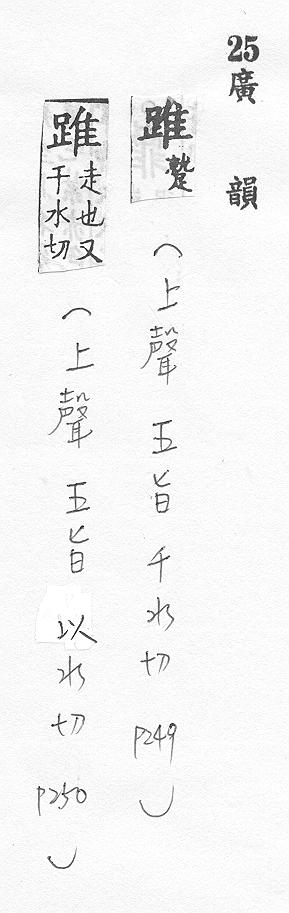 25廣韻
踓蹵(上聲 五旨 千水切 P249)
踓走也又千水切(上聲 五旨 以水切 P250)